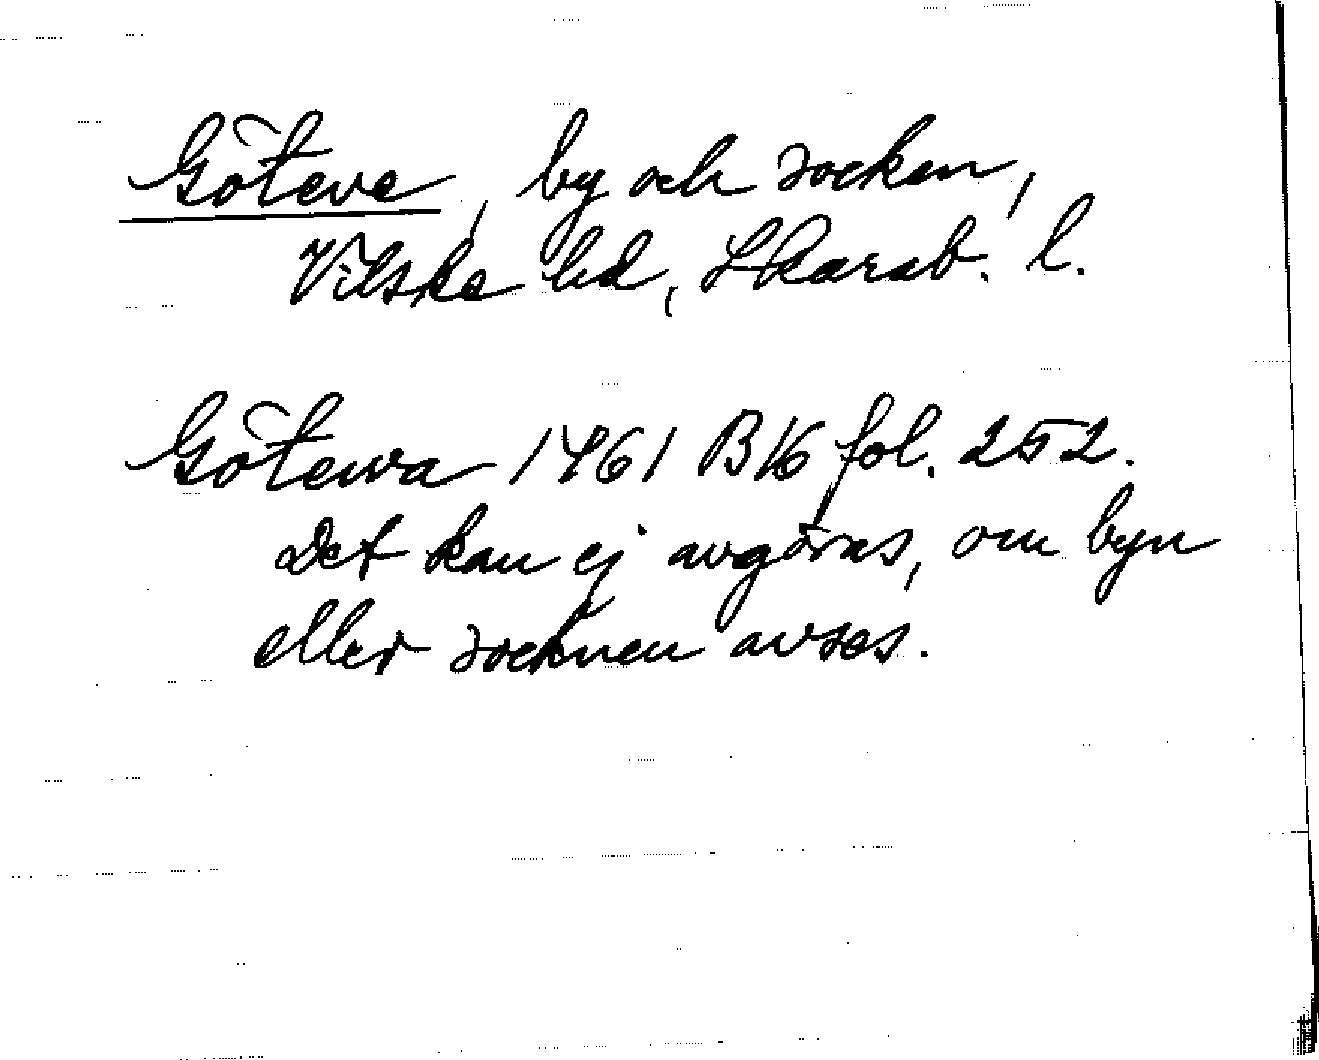 Göteve, by och socken,
Vilske hd, Skarab. l.
Götewa 1461 B16 fol. 252.
Det kan ej avgöras, om byn
eller socknen avses.